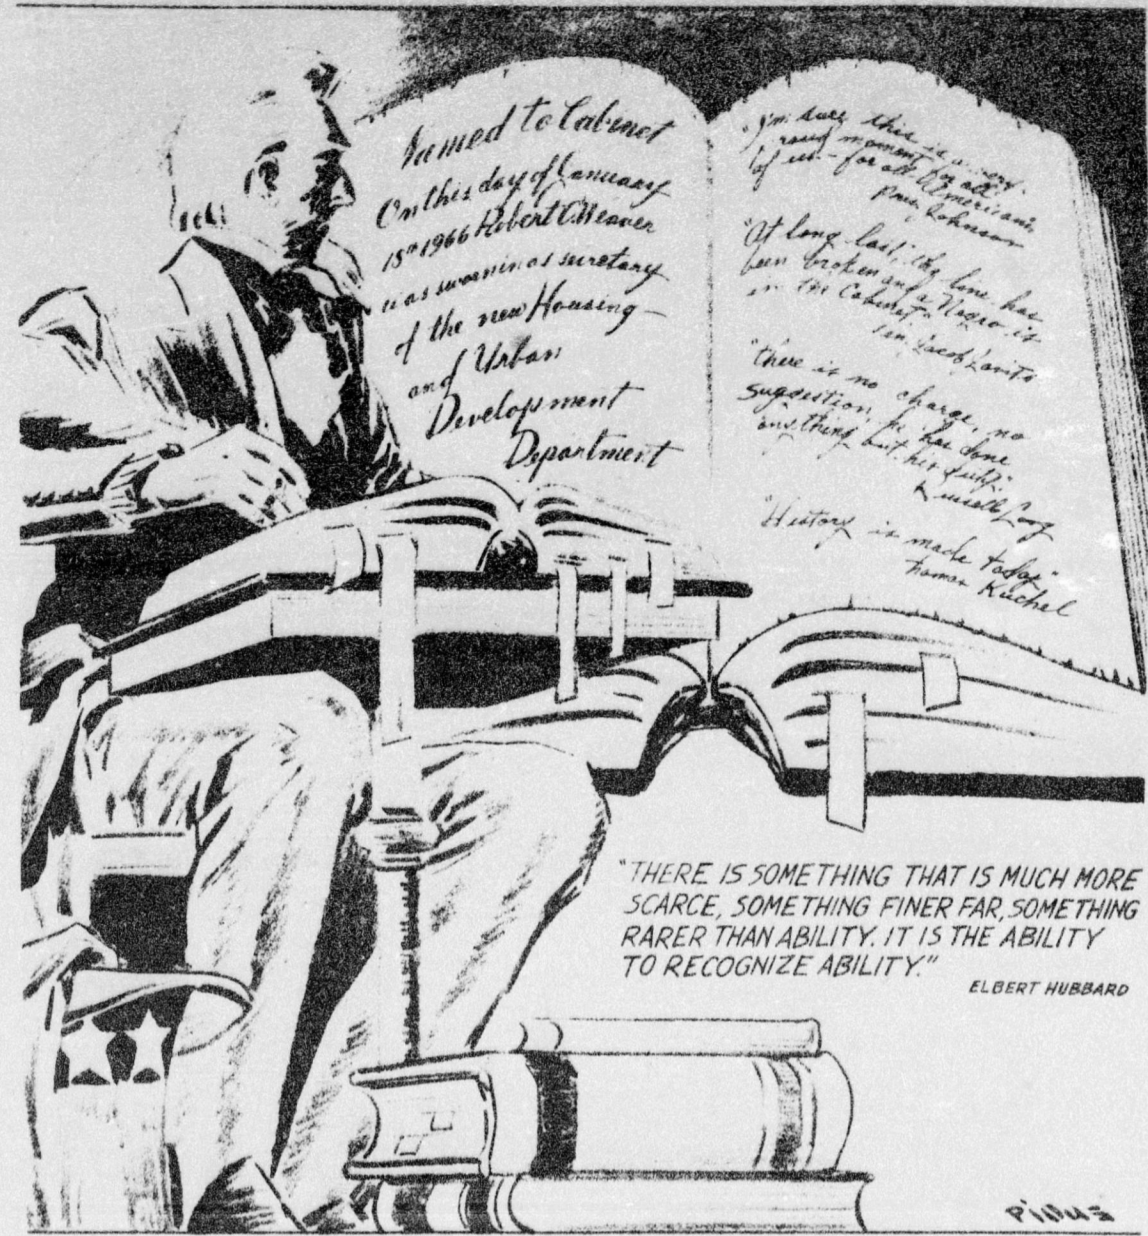 Named to Cabinet
On this day of January
18th 1966 Robert C. Weaver
was sworn in as secretary
of the new Housing—
and Urban
Development
Department
"I'm sure this is a very
proud moment for all
of us—for all Americans
Pres. Johnson
"At long last, the line has
been broken and a Negro is
in the Cabinet."
Sen. Jacob Javits
"there is no charge, no
suggestion, he has done
anything but his duty."
Russell Long
"History is made today"
Thomas Kuchel
"THERE IS SOMETHING THAT IS MUCH MORE
SCARCE, SOMETHING FINER FAR, SOMETHING
RARER THAN ABILITY. IT IS THE ABILITY
TO RECOGNIZE ABILITY."
ELBERT HUBBARD